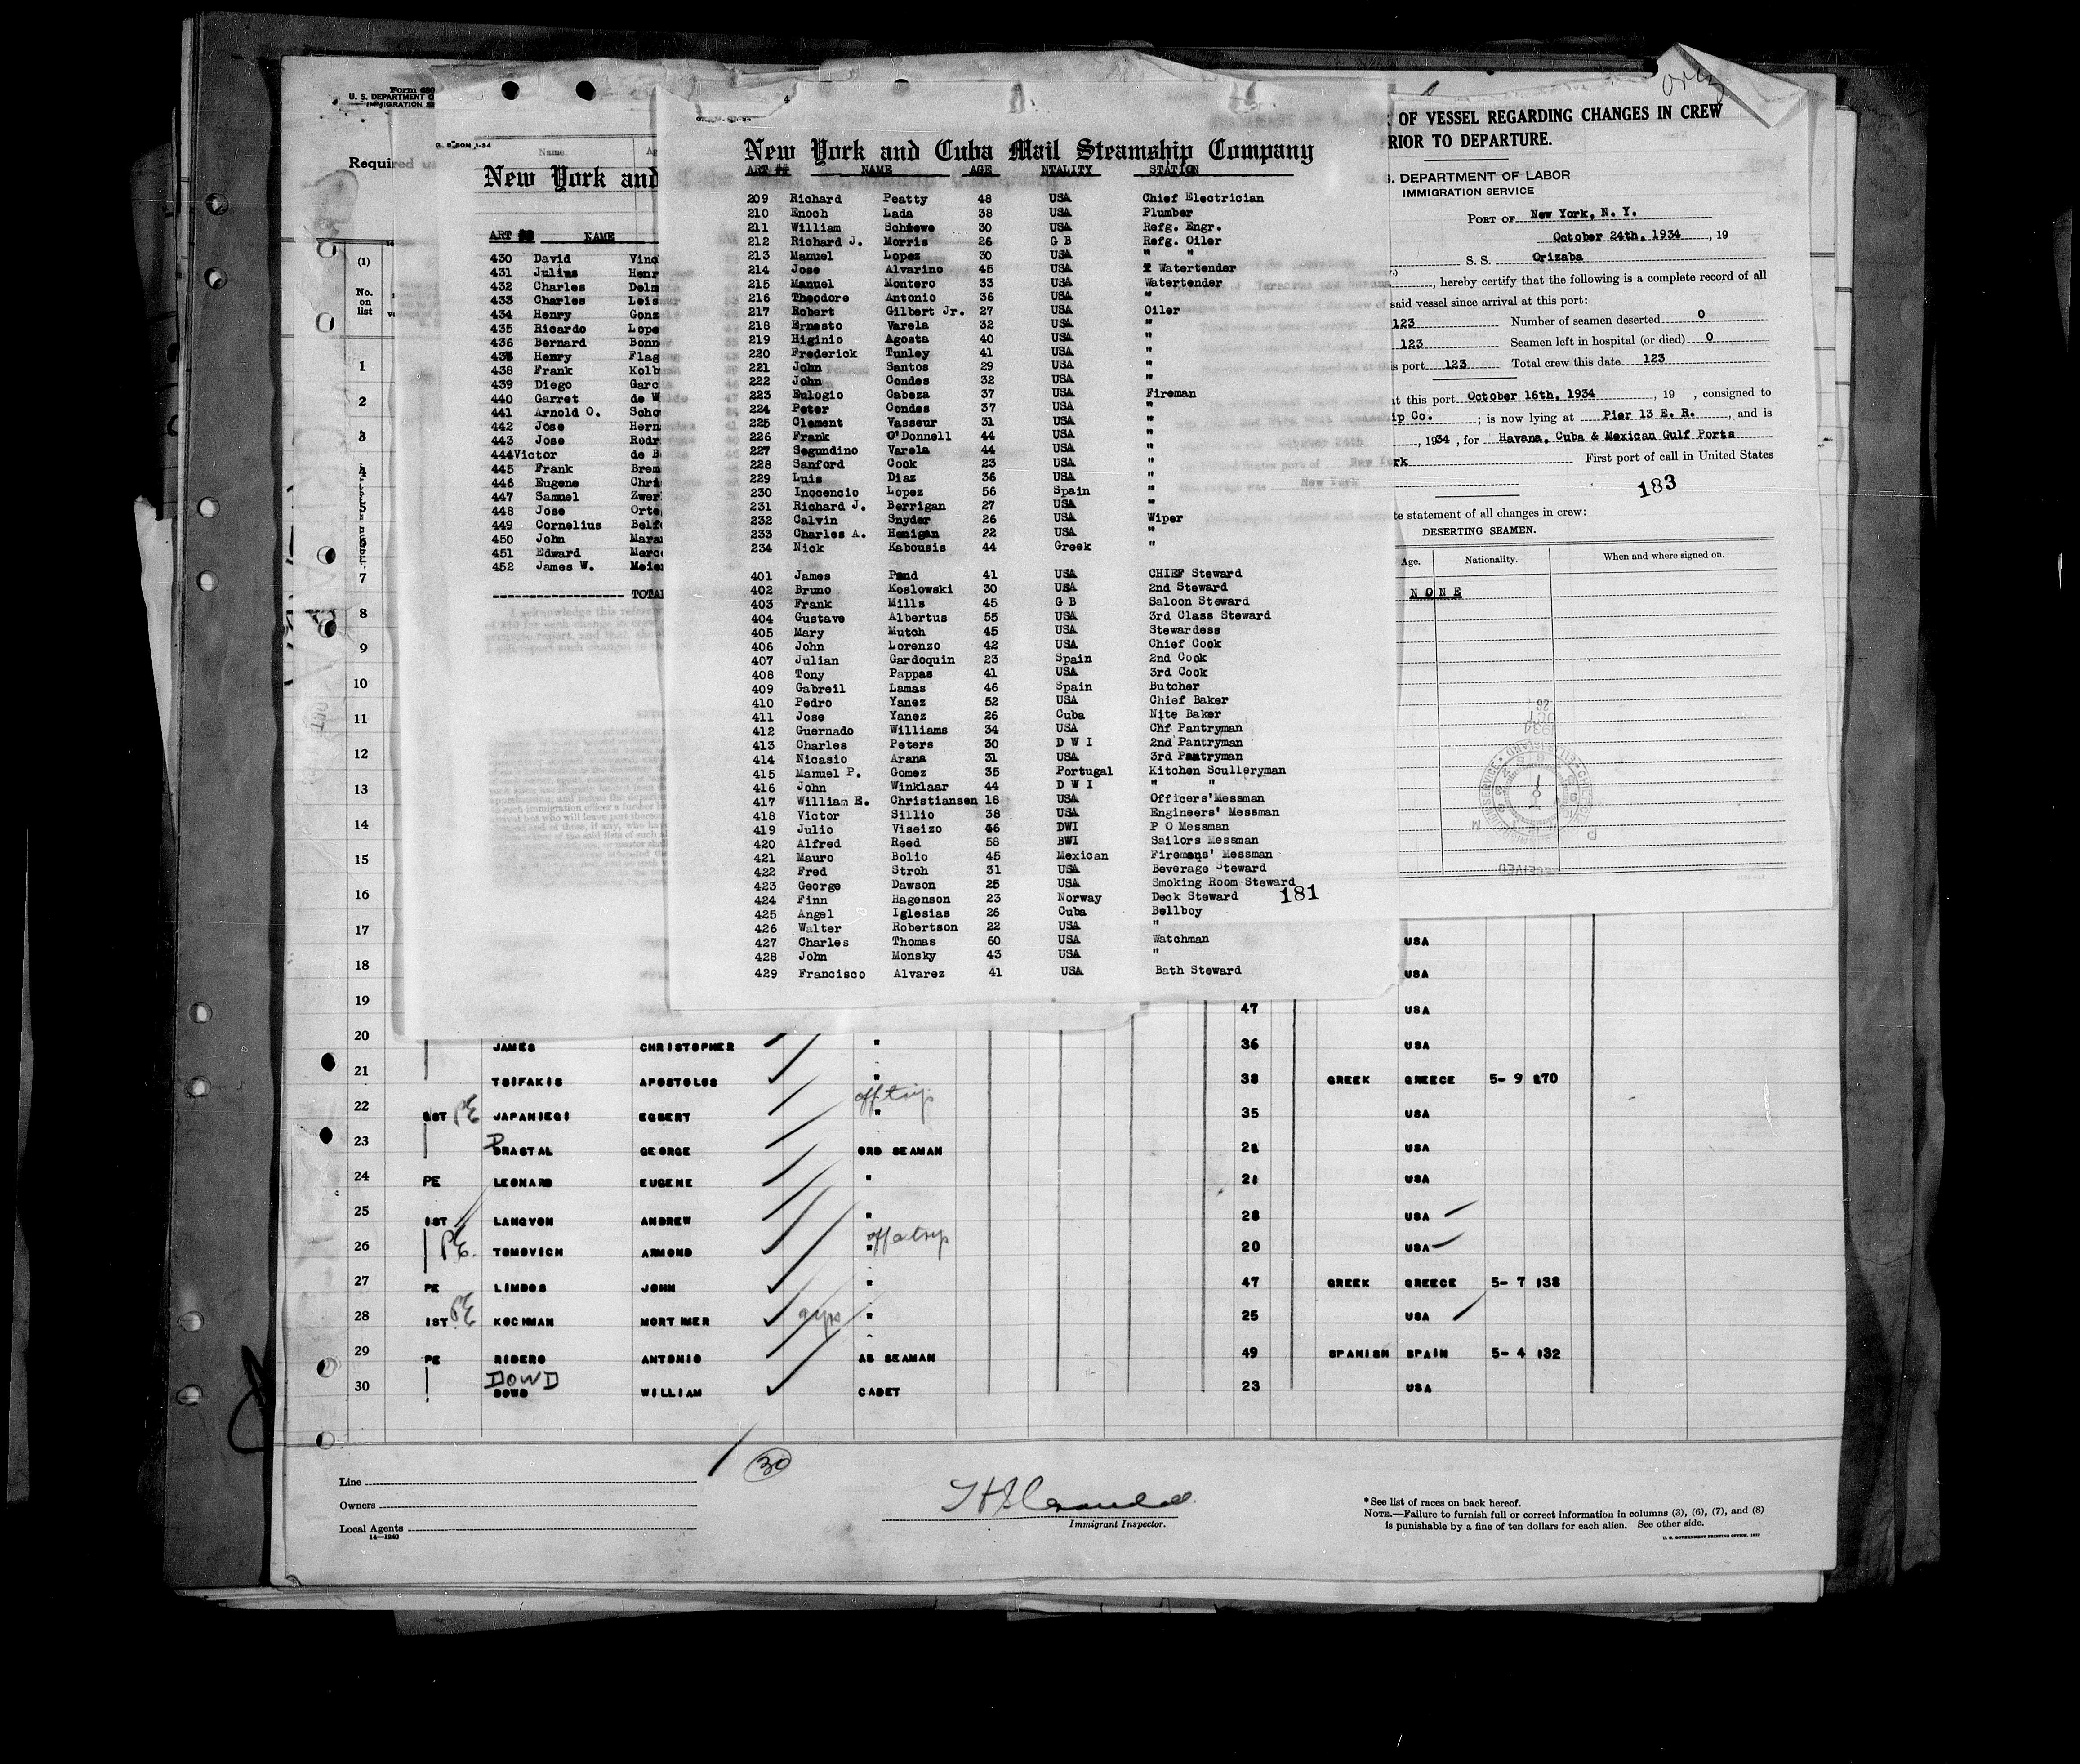 Form 680
U. S. DEPARTMENT O
IMMIGRATION SE
Required u
(1)
No.
on
list
1
2
3
4
5
6
7
8
9
10
11
12
13
14
15
16
17
18
19
20
21
22
23
24
25
26
27
28
29
30
G. S. 50M 1-34
Name.
New York and
ART ## NAME
430 David Vinc
431 Julius Henr
432 Charles Delm
433 Charles Leis
434 Henry Gonz
435 Ricardo Lope
436 Bernard Bonn
437 Henry Flag
438 Frank Kolb
439 Diego Garc
440 Garret de W
441 Arnold O. Scho
442 Jose Hern
443 Jose Rodr
444Victor de B
445 Frank Brem
446 Eugene Chri
447 Samuel Zwer
448 Jose Orte
449 Cornelius Belf
450 John Mara
451 Edward Merc
452 James W. Meie
------------------- TOTA
4
New York and Cuba Mail Steamship Company
ART ## NAME AGE NTALITY STATION
209 Richard Peatty 48 USA Chief Electrician
210 Enoch Lada 38 USA Plumber
211 William Schiewe 30 USA Refg. Engr.
212 Richard J. Morris 26 G B Refg. Oiler
213 Manuel Lopez 30 USA " "
214 Jose Alvarino 45 USA Watertender
215 Manuel Montero 33 USA Watertender
216 Theodore Antonio 36 USA "
217 Robert Gilbert Jr. 27 USA Oiler
218 Ernesto Varela 32 USA "
219 Higinio Agosta 40 USA "
220 Frederick Tunley 41 USA "
221 John Santos 29 USA "
222 John Condes 32 USA "
223 Eulogio Cabeza 37 USA Fireman
224 Peter Condes 37 USA "
225 Clement Vasseur 31 USA "
226 Frank O'Donnell 44 USA "
227 Segundino Varela 44 USA "
228 Sanford Cook 23 USA "
229 Luis Diaz 36 USA "
230 Inocencio Lopez 56 Spain "
231 Richard J. Berrigan 27 USA "
232 Calvin Snyder 26 USA Wiper
233 Charles A. Henigan 22 USA "
234 Nick Kabousis 44 Greek "
401 James Pond 41 USA CHIEF Steward
402 Bruno Koslowski 30 USA 2nd Steward
403 Frank Mills 45 G B Saloon Steward
404 Gustave Albertus 55 USA 3rd Class Steward
405 Mary Mutch 45 USA Stewardess
406 John Lorenzo 42 USA Chief Cook
407 Julian Gardoquin 23 Spain 2nd Cook
408 Tony Pappas 41 USA 3rd Cook
409 Gabreil Lamas 46 Spain Butcher
410 Pedro Yanez 52 USA Chief Baker
411 Jose Yanez 26 Cuba Nite Baker
412 Guernado Williams 34 USA Chf Pantryman
413 Charles Peters 30 D W I 2nd Pantryman
414 Nicasio Arana 31 USA 3rd Pantryman
415 Manuel P. Gomez 35 Portugal Kitchen Sculleryman
416 John Winklaar 44 D W I " "
417 William E. Christiansen 18 USA Officers'Messman
418 Victor Sillio 38 USA Engineers' Messman
419 Julio Viseizo 46 DWI P O Messman
420 Alfred Reed 58 BWI Sailors Messman
421 Mauro Bolio 45 Mexican Firemens' Messman
422 Fred Stroh 31 USA Beverage Steward
423 George Dawson 25 USA Smoking Room Steward
424 Finn Hagenson 23 Norway Deck Steward
181
425 Angel Iglesias 26 Cuba Bellboy
426 Walter Robertson 22 USA "
427 Charles Thomas 60 USA Watchman
428 John Monsky 43 USA "
429 Francisco Alvarez 41 USA Bath Steward
Oriz
OF VESSEL REGARDING CHANGES IN CREW
RIOR TO DEPARTURE.
. DEPARTMENT OF LABOR
IMMIGRATION SERVICE
PORT OF New York, N. Y.
October 24th, 1934 , 19
S. S. Orizaba
, hereby certify that the following is a complete record of all
said vessel since arrival at this port:
123 Number of seamen deserted 0
123 Seamen left in hospital (or died) 0
s port 123 Total crew this date 123
at this port October 16th, 1934 , 19 , consigned to
ip Co. ; is now lying at Pier 13 E. R. , and is
, 1934 , for Havana, Cuba & Mexican Gulf Ports
rk First port of call in United States
183
te statement of all changes in crew:
DESERTING SEAMEN.
Age. Nationality. When and where signed on.
N O N E
USA
USA
47 USA
JAMES CHRISTOPHER " 36 USA
TSIFAKIS APOSTOLOS " 38 GREEK GREECE 5- 9 170
off trip
1ST PE JAPANIEGI EGBERT " 35 USA
DRASTAL GEORGE ORD SEAMAN 21 USA
PE LEONARD EUGENE " 21 USA
1ST LANGVON ANDREW " 28 USA
PE. TOMOVICH ARMOND " off a trip 20 USA
PE LIMBOS JOHN " 47 GREEK GREECE 5- 7 138
1ST PE KOCHMAN MORTIMER " 25 USA
PE RIBERO ANTONIO AB SEAMAN 49 SPANISH SPAIN 5- 4 132
DOWD
DOWD WILLIAM CADET 23 USA
30
Line
Owners
Local Agents
14—1240
Immigrant Inspector.
*See list of races on back hereof.
NOTE.—Failure to furnish full or correct information in columns (3), (6), (7), and (8)
is punishable by a fine of ten dollars for each alien. See other side.
U. S. GOVERNMENT PRINTING OFFICE